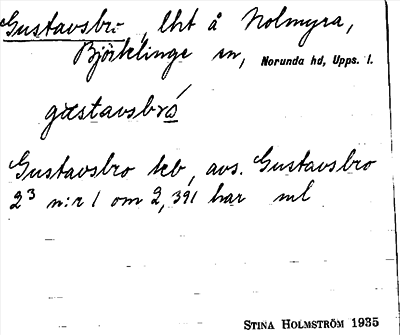 Gustavsbro, lht å Nolmyra,
Björklinge sn, Norunda hd, Upps. l.
gustavsbró
Gustavsbro kb, avs. Gustavsbro
2³ n:r 1 om 2,391 har ml
STINA HOLMSTRÖM 1935